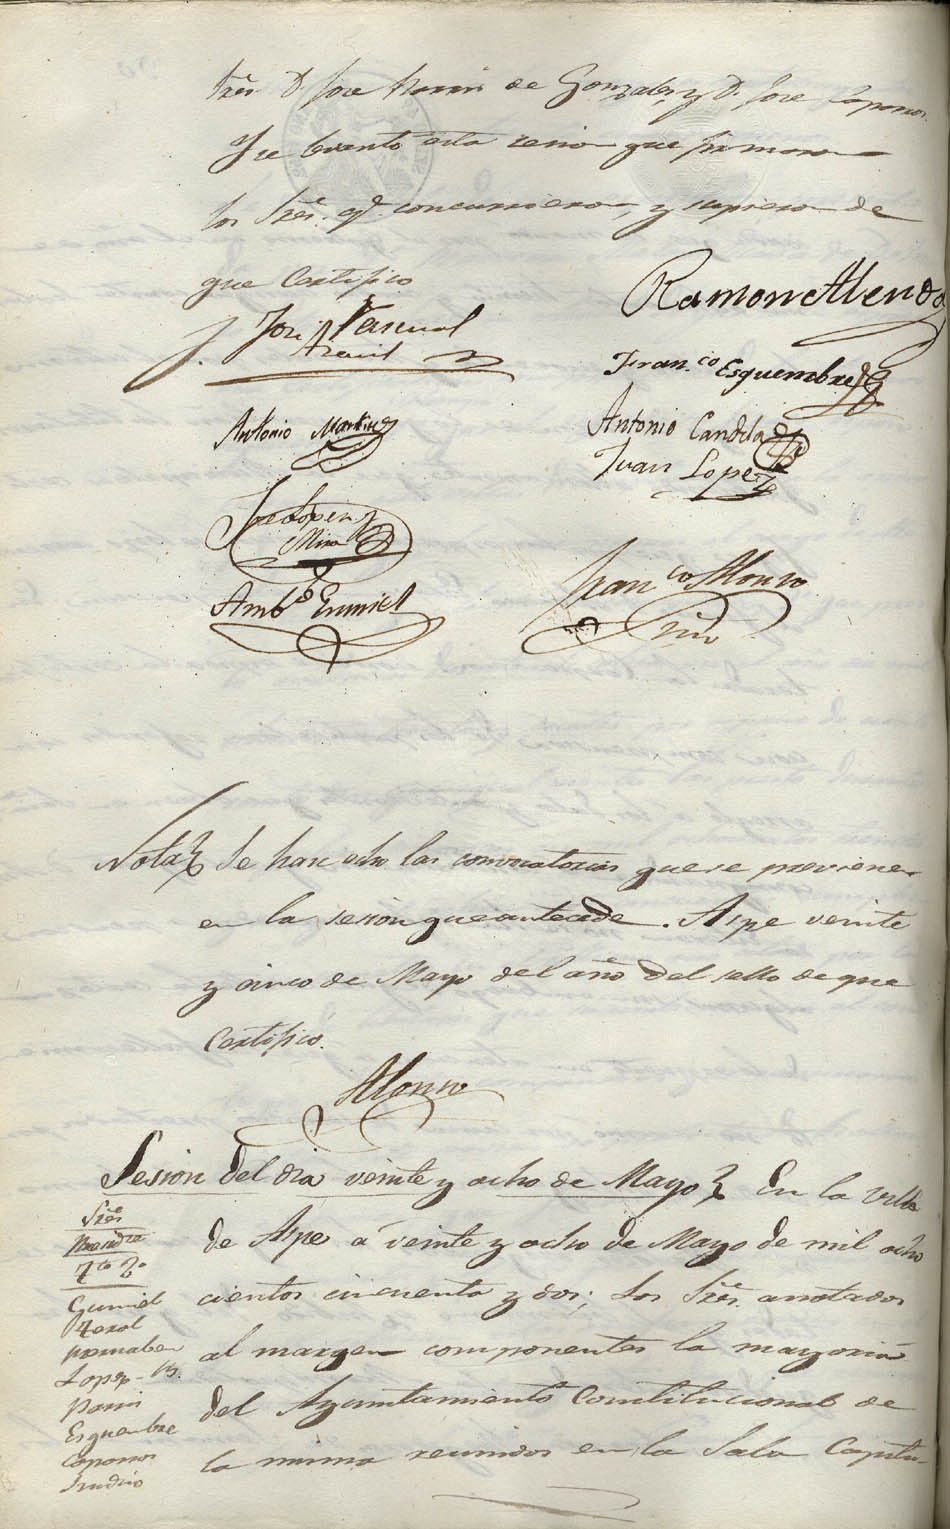 tres D. Jose Maria de Gonzalez, y D. Jose Caparros.
Y se levantó esta sesion que firmaron
los Sres. qe. concurrieron, y supieron de
que Certifico
Ramon Alenda
J. Jose Pascual
Franco. Esquembre
Antonio Martinez
Antonio Candela
Juan Lopez
Jose Lopez
Mira
Franco Alonso
Ambo Gumiel
Nota Se han echo las convocatorias que se previenen
en la sesion que antecede. Aspe veinte
y cinco de Mayo del año del sello de que
Certifico.
Alonso
Sesion del dia veinte y ocho de Mayo En la Villa
de Aspe á veinte y ocho de Mayo de mil ocho
cientos cincuenta y dos; Los Sres. anotados
al margen componentes la mayoria
del Ayuntamiento Constitucional de
la misma reunidos en la Sala Capitu-
Sres
Gumiel
Lopez
Esquembre
Caparros
Sindico